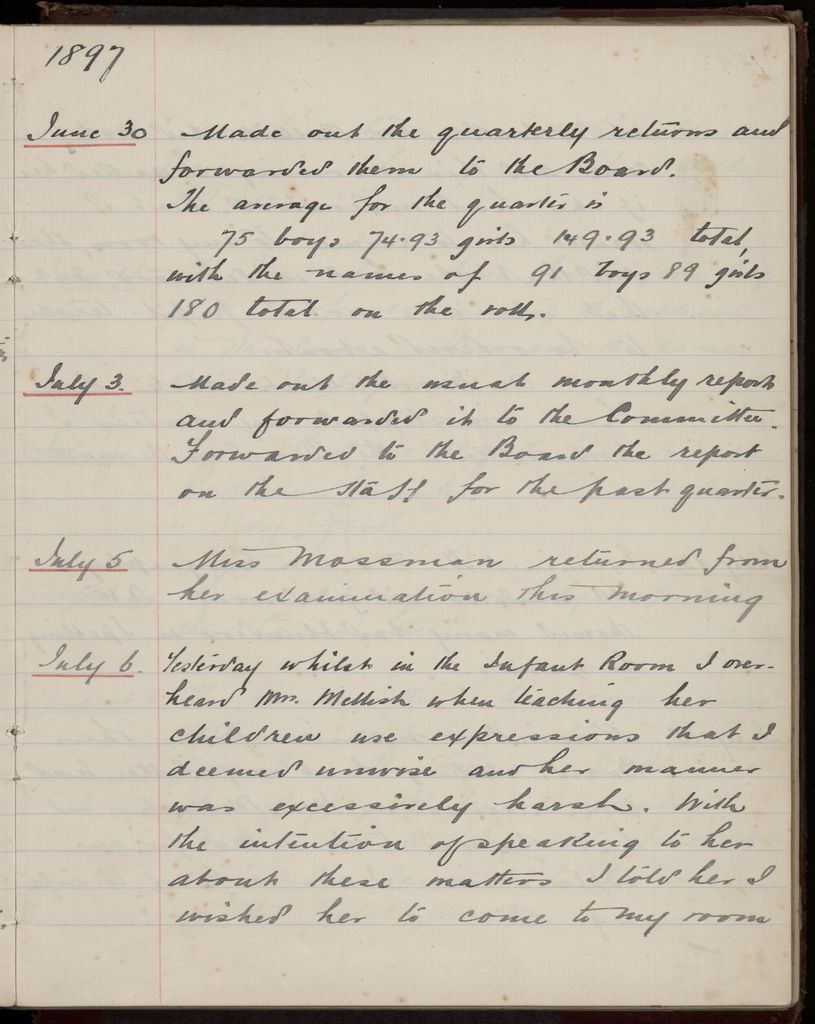 1897
June 30 Made out the quarterly returns and
forwarded them to the Board.
The average for the quarter is
75 boys 74.93 girls 149.93 total,
with the names of 91 boys 89 girls
180 total on the rolls.
July 3. Made out the usual monthly report
and forwarded it to the Committee.
Forwarded to the Board the report
on the Staff for the past quarter.
July 5 Miss Mossman returned from
her examination this morning
July 6. Yesterday whilst in the Infant Room I over-
heard Mrs. Mellish when teaching her
children use expressions that I
deemed unwise and her manner
was excessively harsh. With
the intention of speaking to her
about these matters I told her I
wished her to come to my room